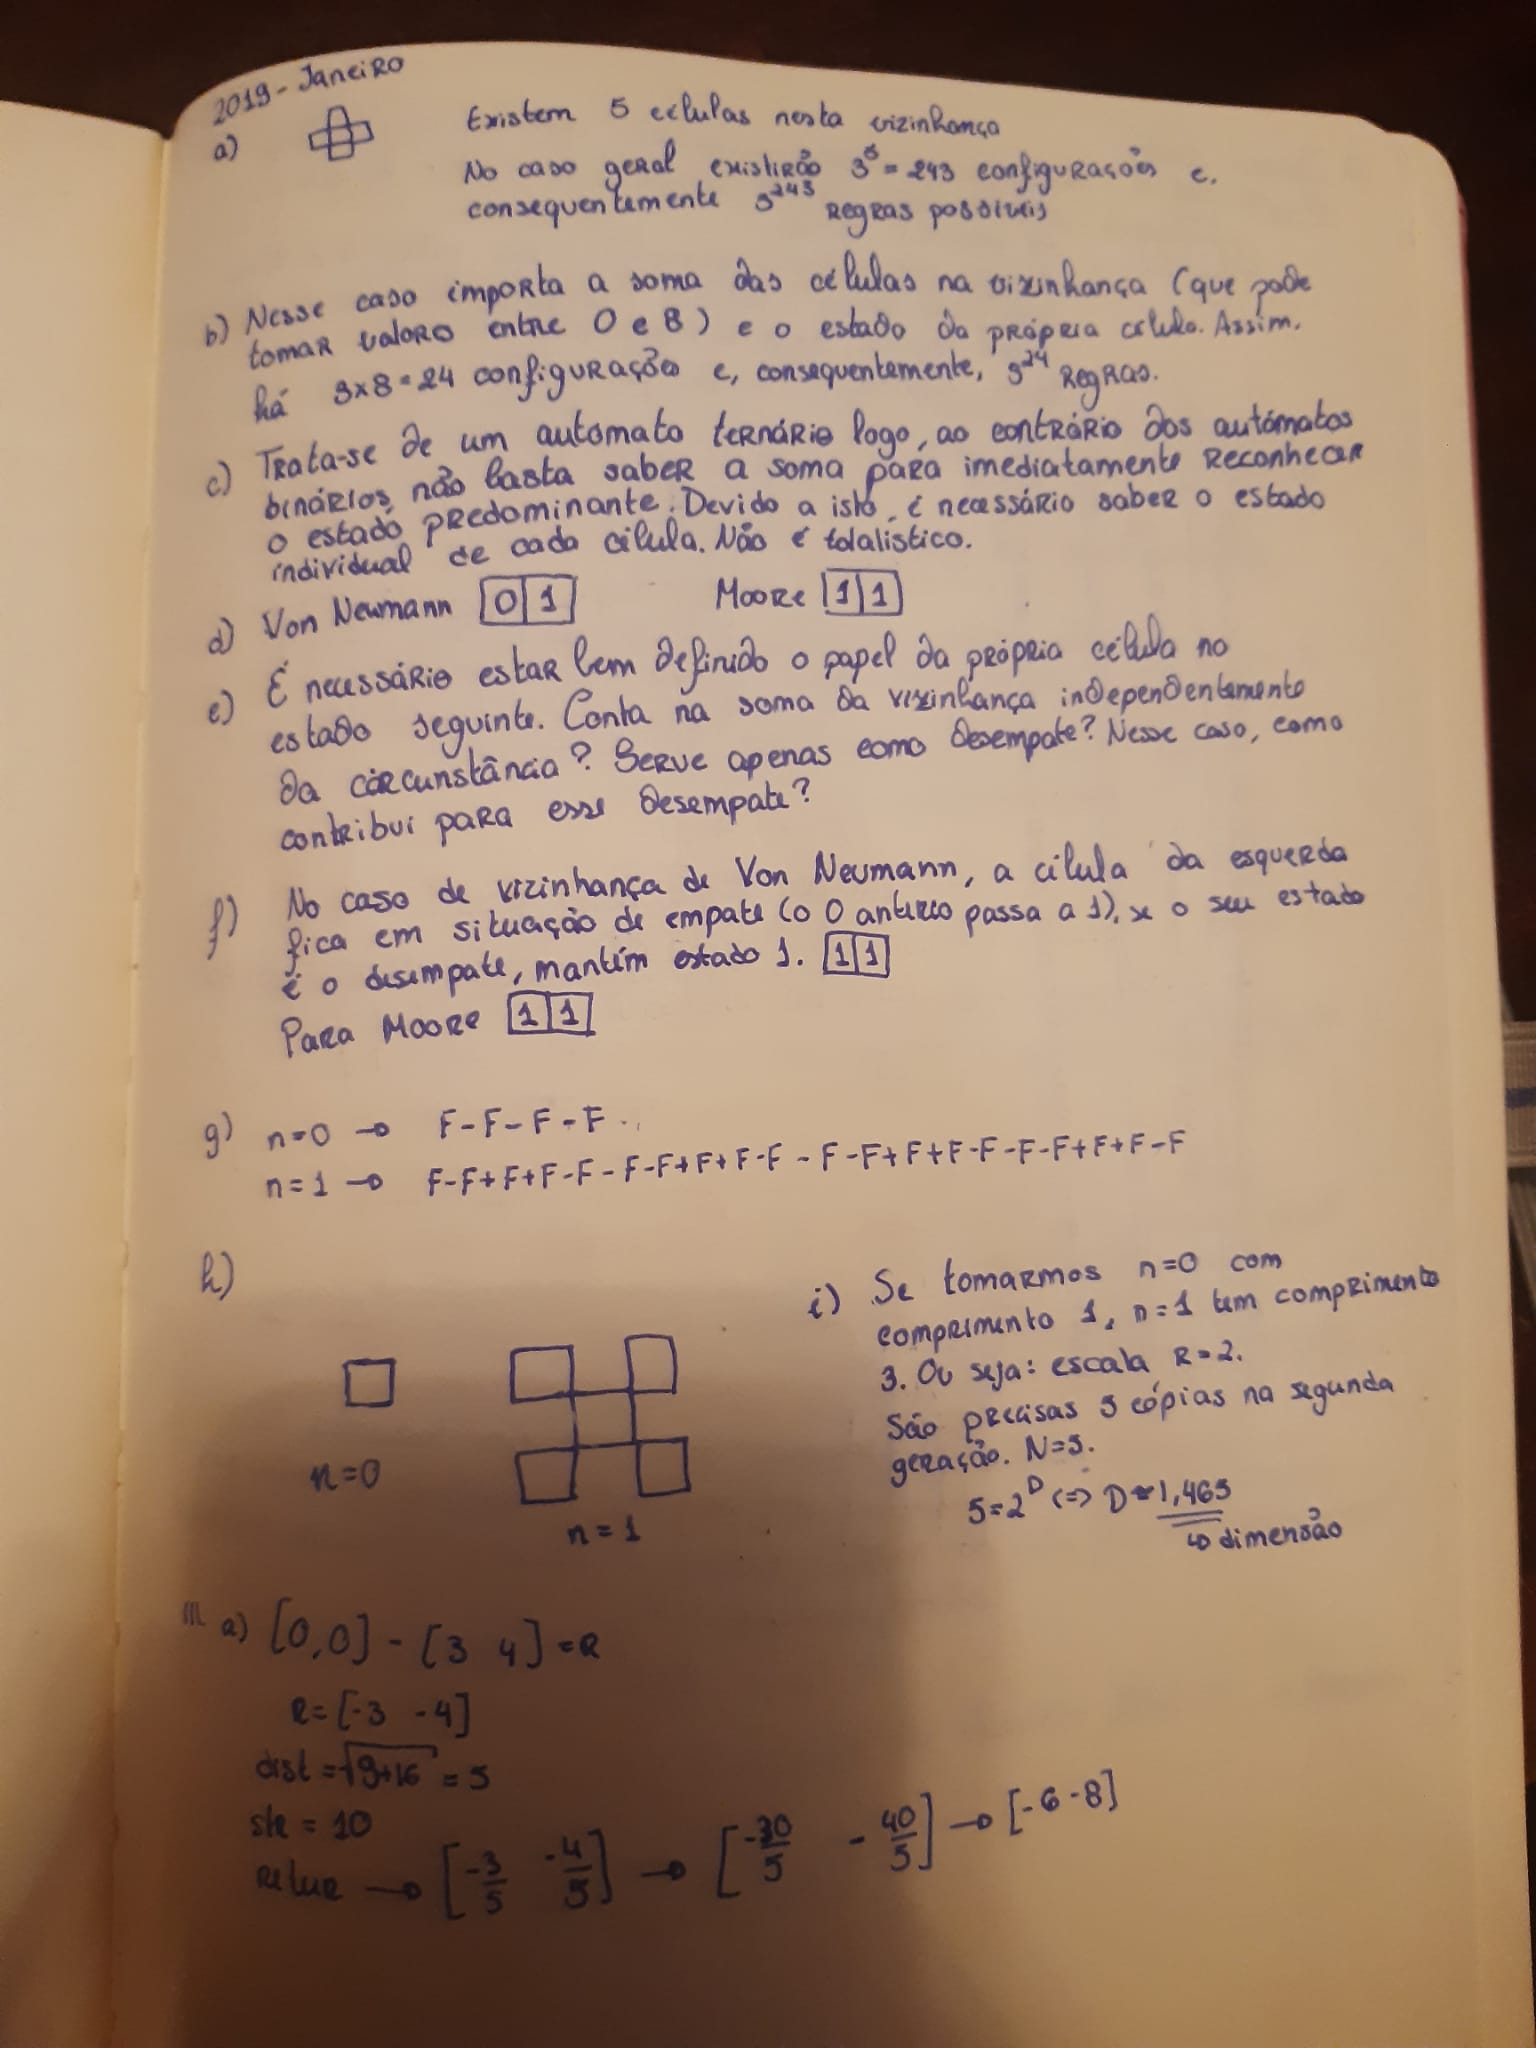 2019 - Janeiro
a) Existem 5 células nesta vizinhança
No caso geral existirão 3^5 = 243 configurações e,
consequentemente 3^243 regras possíveis
b) Nesse caso importa a soma das células na vizinhança (que pode
tomar valores entre 0 e 8) e o estado da própria célula. Assim,
há 3x8=24 configurações e, consequentemente, 3^24 regras.
c) Trata-se de um automato ternário logo, ao contrário dos autómatos
binários, não basta saber a soma para imediatamente reconhecer
o estado predominante. Devido a isto, é necessário saber o estado
individual de cada célula. Não é totalístico.
d) Von Neumann 0 1 Moore 1 1
e) É necessário estar bem definido o papel da própria célula no
estado seguinte. Conta na soma da vizinhança independentemente
da circunstância? Serve apenas como desempate? Nesse caso, como
contribui para esse desempate?
f) No caso de vizinhança de Von Neumann, a célula da esquerda
fica em situação de empate (o 0 anterior passa a 1), se o seu estado
é o desempate, mantém estado 1. 1 1
Para Moore 1 1
g) n=0 → F-F-F-F
n=1 → F-F+F+F-F-F-F+F+F-F-F-F+F+F-F-F-F+F+F-F
h)
n=0
n=1
i) Se tomarmos n=0 com
comprimento 1, n=1 tem comprimento
3. Ou seja: escala R=2.
São precisas 5 cópias na segunda
geração. N=5.
5=2^D (=> D≈1,465
↳ dimensão
III a) [0,0] - [3 4] = R
R=[-3 -4]
dist = √9+16 = 5
str = 10
retur → [-3/5 -4/5] → [-30/5 -40/5] → [-6 -8]